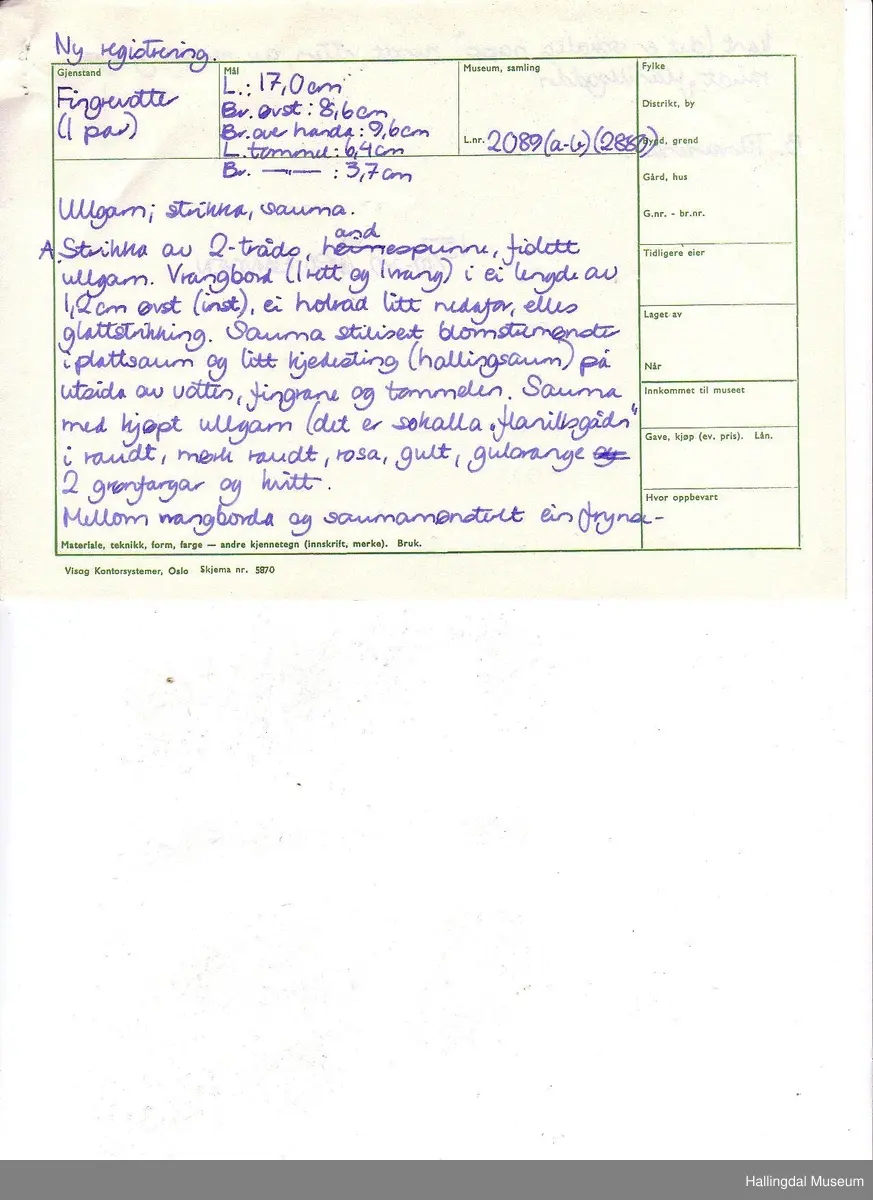 Ny registrering.
Gjenstand
Fingrevotter
(1 par)
Mål
L.: 17,0 cm
Br. øvst: 8,6 cm
Br. over handa: 9,6 cm
L. tommel: 6,4 cm
Br. —"— : 3,7 cm
Museum, samling
L.nr. 2089 (a-b) (2880)
Fylke
Distrikt, by
Bygd, grend
Gård, hus
G.nr. - br.nr.
Tidligere eier
Laget av
Når
Innkommet til museet
Gave, kjøp (ev. pris). Lån.
Hvor oppbevart
Ullgarn; strikka, sauma.
A. Strikka av 2-tråds, handspunne, fiolett
ullgarn. Vrangbord (1 rett og 1 vrang) i ei lengde av
1,2 cm øvst (inst), ei holrad litt nedafor, elles
glattstrikking. Sauma stilisert blomstermønster
i plattsaum og litt kjedesting (hallingsaum) på
utsida av votten, fingrane og tommelen. Sauma
med kjøpt ullgarn (det er sokalla „flanillsgådn"
i raudt, mørk raudt, rosa, gult, guloransje
2 grønfargar og kvitt.
Mellom vrangborda og saumamønsteret ein fryns-
Materiale, teknikk, form, farge — andre kjennetegn (innskrift, merke). Bruk.
Visag Kontorsystemer, Oslo Skjema nr. 5870
Hallingdal Museum